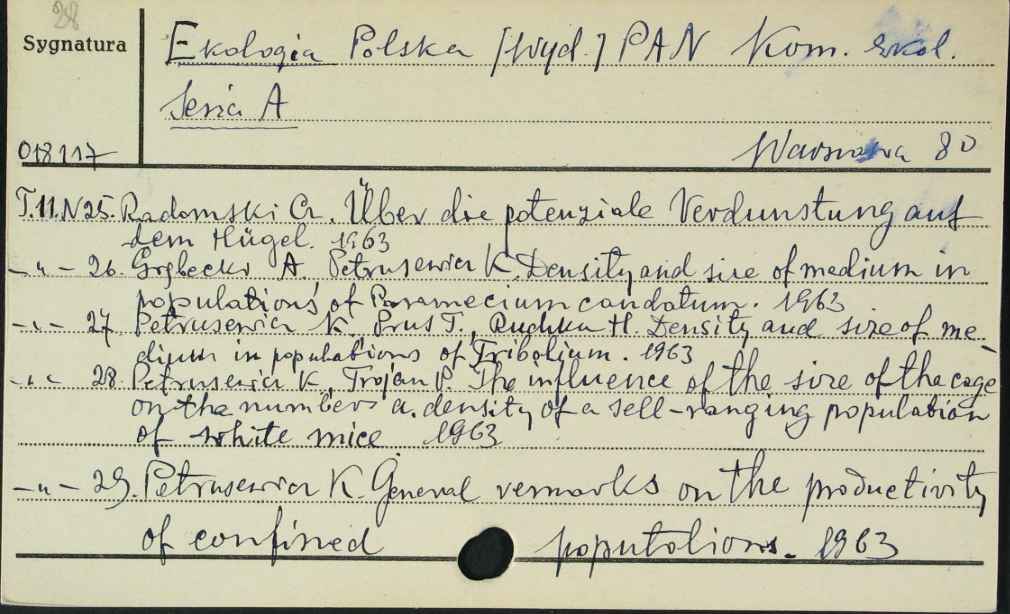 28
Sygnatura
Ekologia Polska [Wyd.] PAN Kom. ekol.
Seria A
018117
Warszawa 80
T.11.N 25. Radomski Cz. Über die potenziale Verdunstung auf
dem Hügel. 1963
-"- 26. Grębecki A. Petrusewicz K. Density and size of medium in
populations of Paramecium caudatum. 1963
-"- 27 Petrusewicz K. Prus T., Rudzka H. Density and size of me-
dium in populations of Tribolium. 1963
-"- 28. Petrusewicz K, Trojan P. The influence of the size of the cage
on the numbers a. density of a sell-ranging population
of white mice 1963
-"- 29. Petrusewicz K. General remarks on the productivity
of confined populations. 1963